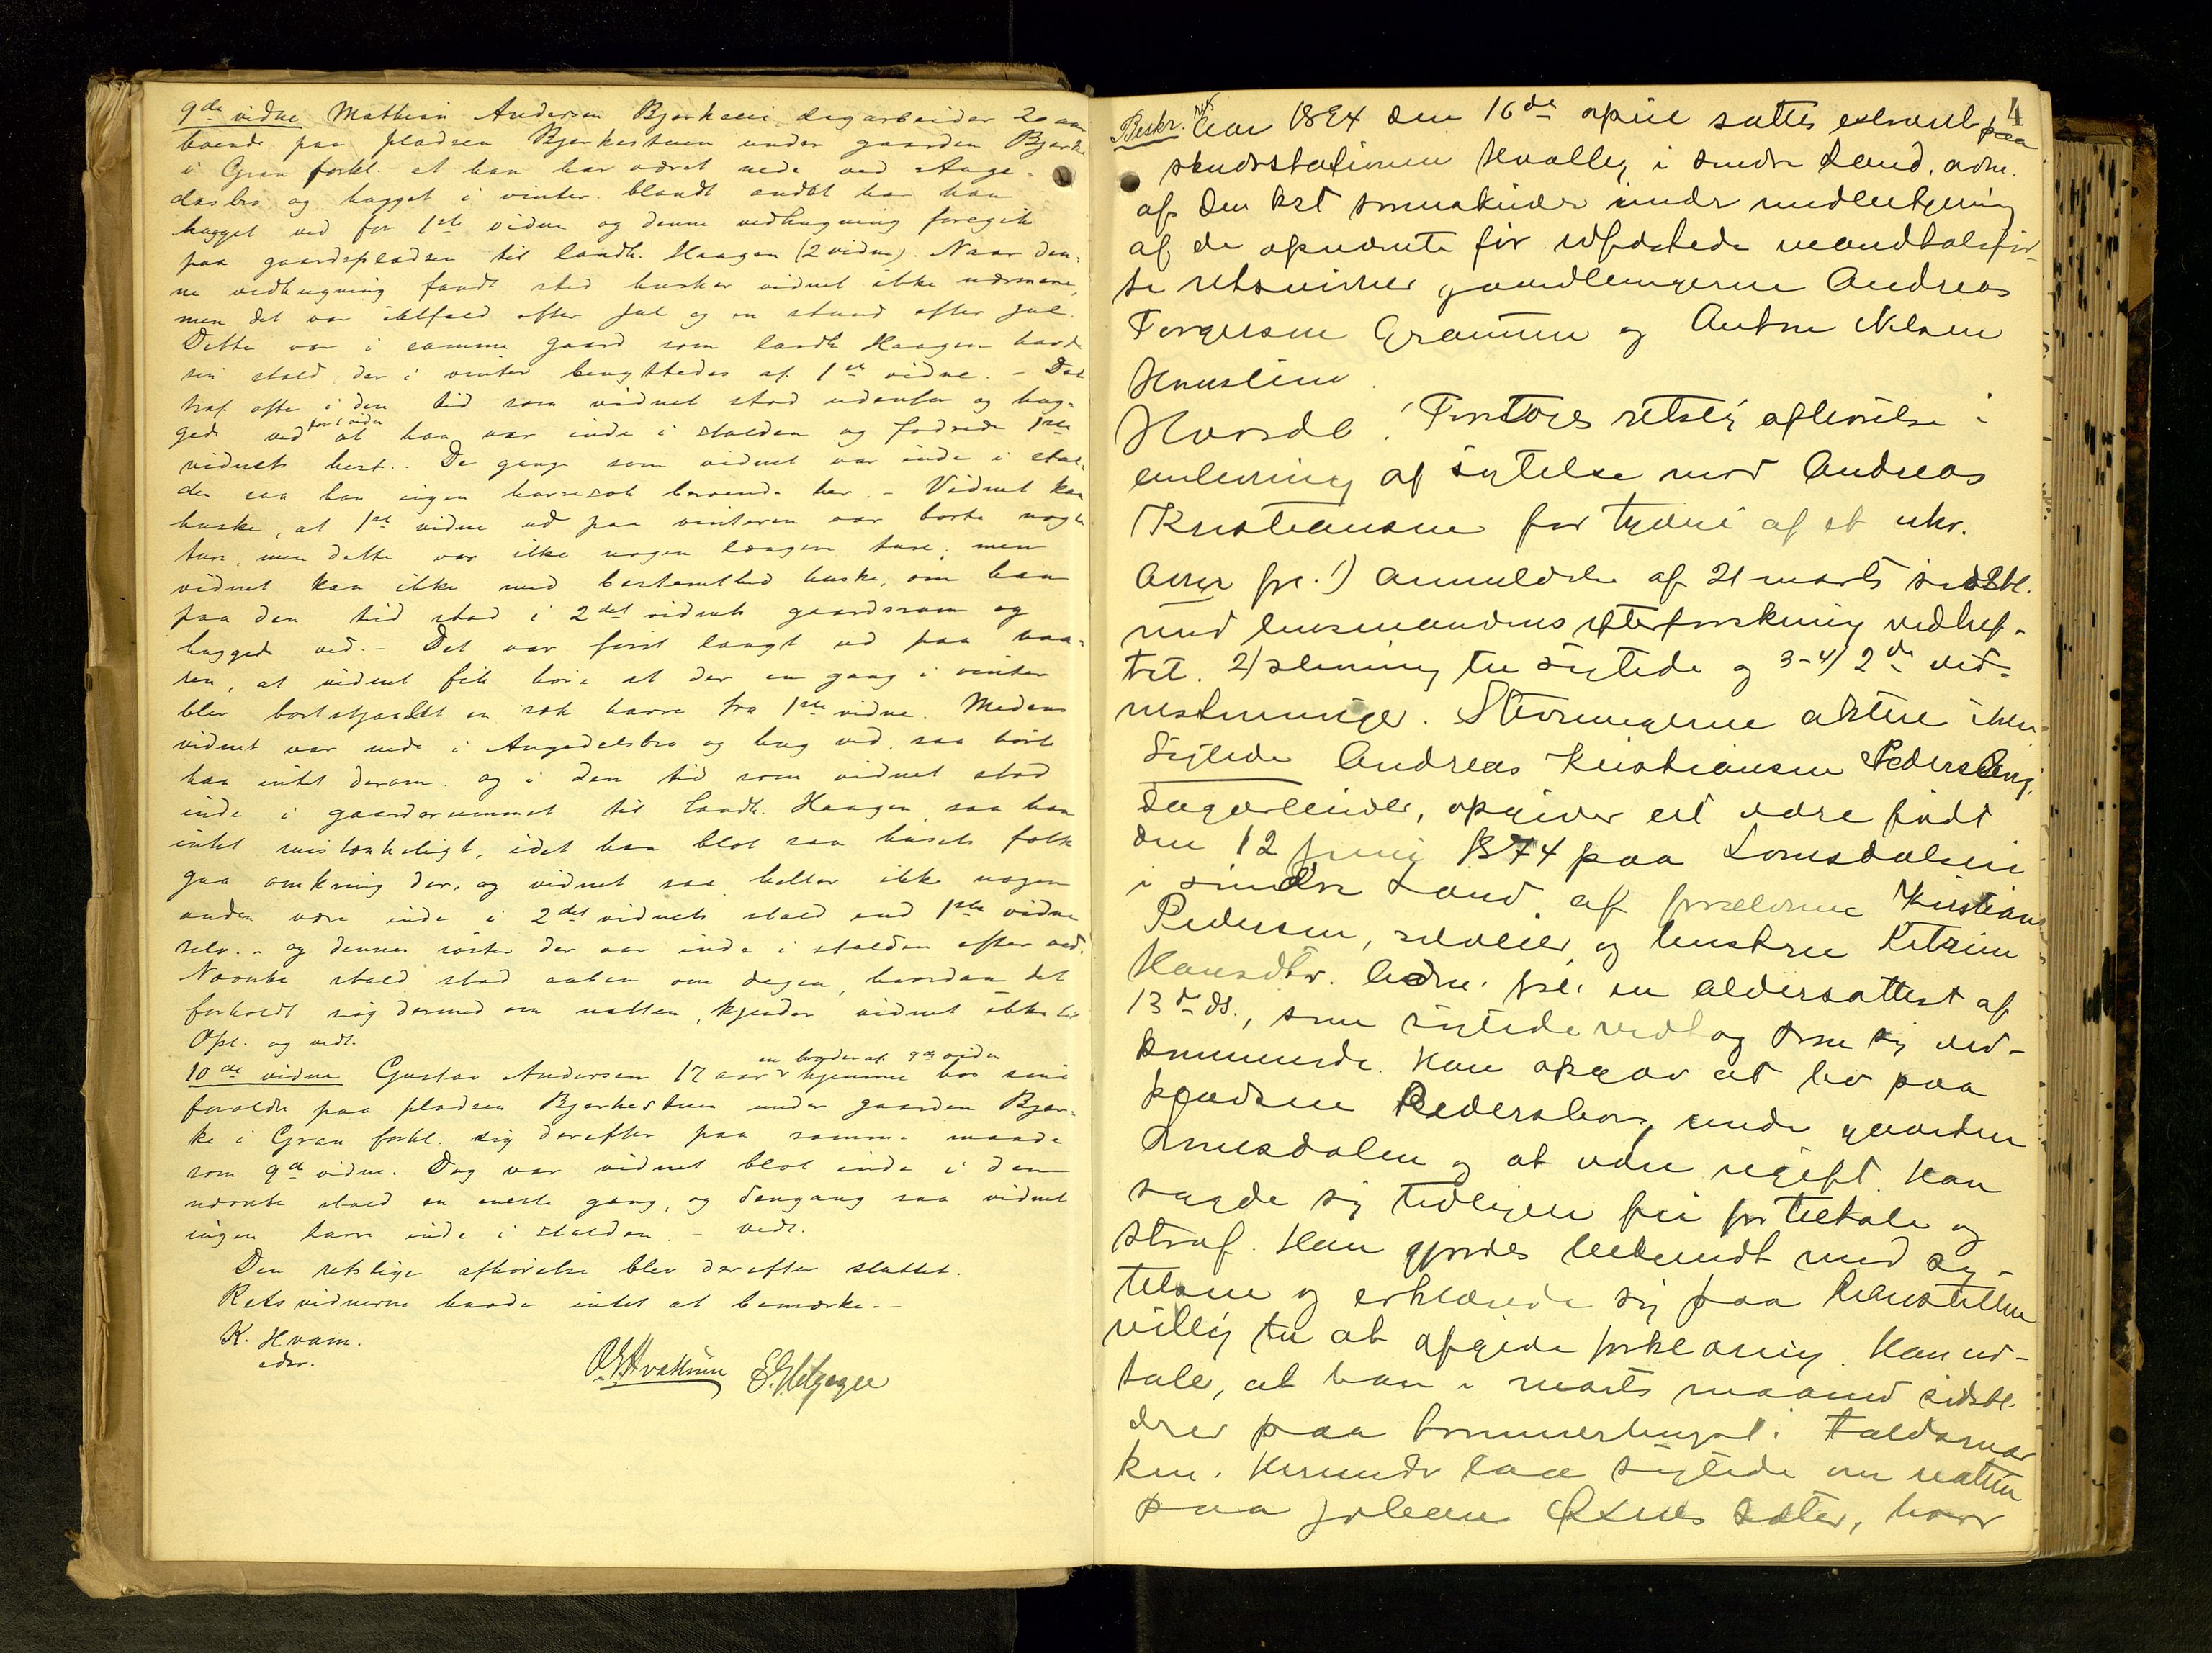 9de vidne Mathias Andersen Bjerkeeie dagarbeider 20 aar
boende paa pladsen Bjerkestuen under gaarden Bjerke
i Gran forkl. at han har været nede ved Auge-
dalsbro og hugget i vinter blandt andet har han
hugget ved for 1ste vidne og denne vedhugning foregik
paa gaardspladsen til landh. Haagen (2 vidne). Naar den-
ne vedhugning fandt sted husker vidnet ikke nærmere,
men det var ialfald efter jul og en stund efter jul.
Dette var i samme gaard som landh Haagen havde
sin stald, der i vinter benyttedes af 1ste vidne. - Det
traf ofte i den tid som vidnet stod udenfor og hug-
gede ved for 1 vidne at han var inde i stalden og fodrede 1ste
vidnets hest. De gange som vidnet var inde i stal-
den saa han ingen havresæk beroende her. - Vidnet kan
huske, at 1ste vidne ud paa vinteren var borte nogle
ture, men dette var ikke nogen længere ture; men
vidnet kan ikke med bestemthed huske, om han
paa den tid stod i 2det vidnets gaardsrom og
huggede ved. - Det var først langt ud paa vaa-
ren, at vidnet fik høre at der en gang i vinter
blev bortstjaalet en sæk havre fra 1ste vidne. Medens
vidnet var nede i Augedalsbro og hug ved, saa hørte
han intet derom. og i den tid som vidnet stod
inde i gaardsrummet til landh. Haagen saa han
intet mistænkeligt, idet han blot saa husets folk
gaa omkring der, og vidnet saa heller ikke nogen
anden være inde i 2det vidnets stald end 1ste vidne
selv. - og dennes søster der var inde i stalden efter ved.
Nævnte stald stod aaben om dagen, hvordan det
forholdt sig dermed om natten, kjender vidnet ikke til
Opl. og vedt.
10de vidne Gustav Andersen 17 aar en broder af 9de vidne hjemme hos sine
forældre paa pladsen Bjerkestuen under gaarden Bjer-
ke i Gran forkl. sig derefter paa samme maade
som 9de vidne. Dog var vidnet blot inde i den
nævnte stald en eneste gang, og dengang saa vidnet
ingen havre inde i stalden. - vedt.
Den retslige afhørelse blev derefter sluttet.
Retsvidnerne havde intet at bemærke. -
K. Hvam.
edsv.
4
Beskr. Aar 1894 den 16de april sattes extraret paa
skudsstationen Hvalby i søndre Land, adm.
af den kst sorenskriver under medbetjening
af de opnævnte før edfæstede mandtalsfør-
te retsvidner gaardbrugerne Andreas
Torgersen Graunm og Anton Nilsen
Hvorda: Foretoges retslig afhørelse i
anledning af sigtelse mod Andreas
Kristiansen for tyveri af et uhr.
Adm fre. 1) anmeldelse af 21 marts sidstl.
med lensmandens efterforskning vedhef-
tet. 2) stevning til sigtede og 3-4) 2de vid-
nestevninger. Stevningerne akter ikke.
Sigtede Andreas Kristiansen Pedersborg,
dagarbeider, opgiver at være født
den 12 juni 1874 paa Lomsdalseie
i søndre Land af forældrene Kristian
Pedersen, selveier, og hustru Katrine
Hansdtr. Adm. fre. en aldersattest af
13de ds., som sigtede vedtog som sig ved-
kommende. Han opgav at bo paa
pladsen Pedersborg under gaarden
Lomsdalen og at være ugift. Han
sagde sig tidligere fri for tiltale og
straf. Han gjordes bekjendt med sig-
telsen og erklærede sig paa tilspørgsel
villig til at afgive forklaring. Han ud-
tale, at han i marts maaned sidstl.
drev paa tømmerhugst i
ken. Herunder laa sigtede om natten
paa Johan sæter, hvor